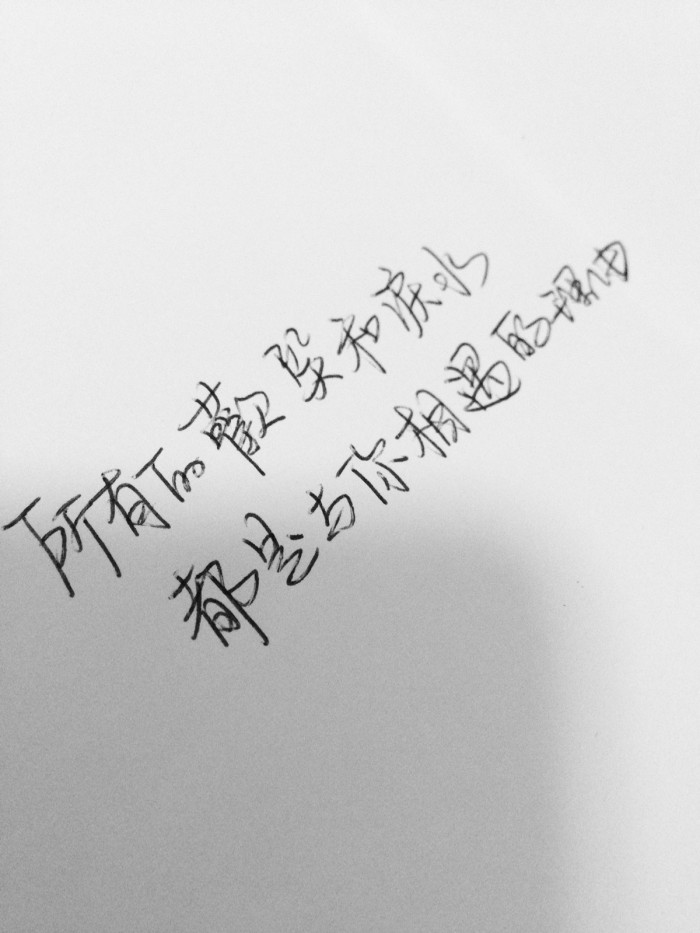 所有的歡樂和淚水
都是与你相遇的理由